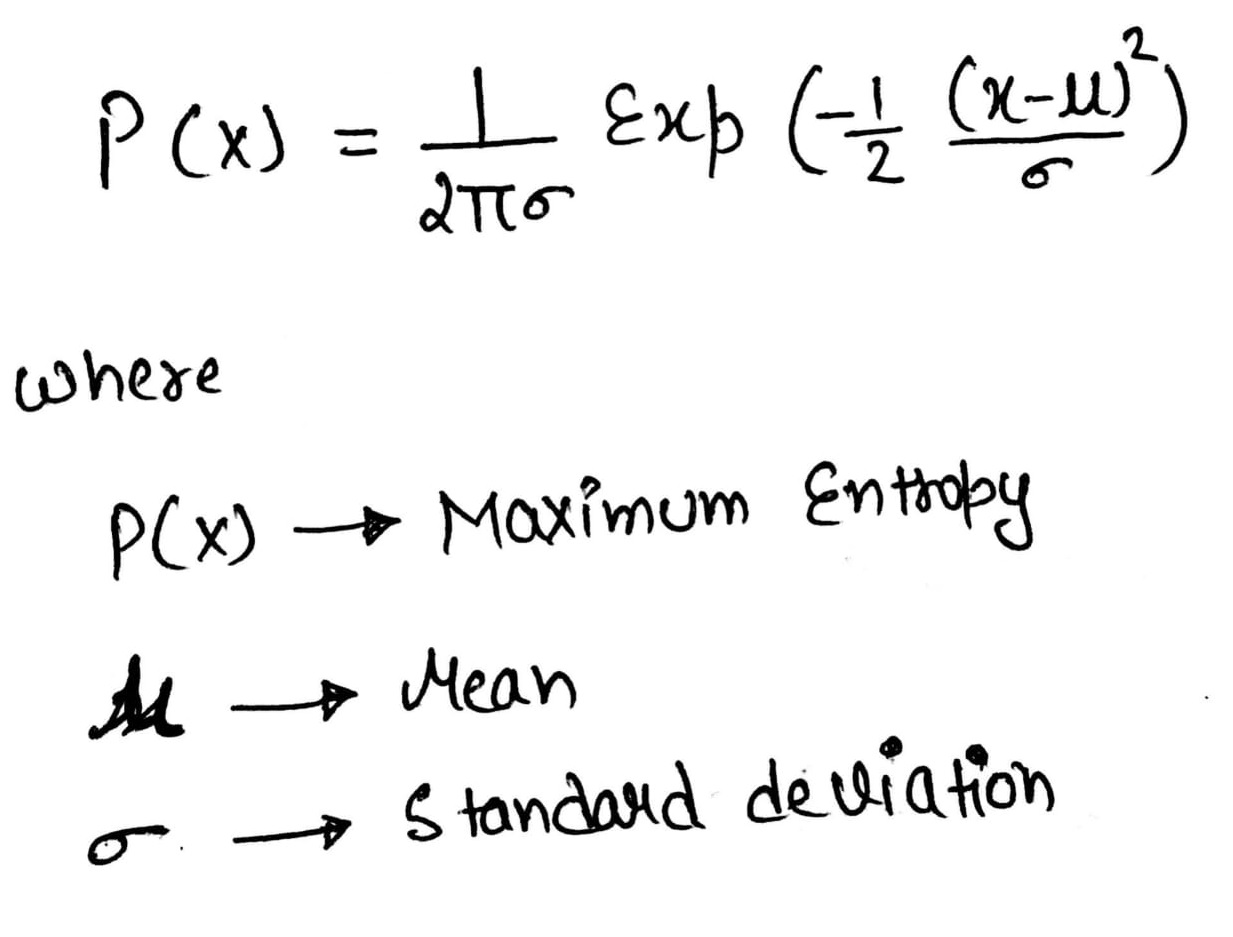 P(x) = 1/2πσ Exp (-1/2 (x-μ)²/σ)
where
P(x) → Maximum Entropy
μ → Mean
σ → Standard deviation